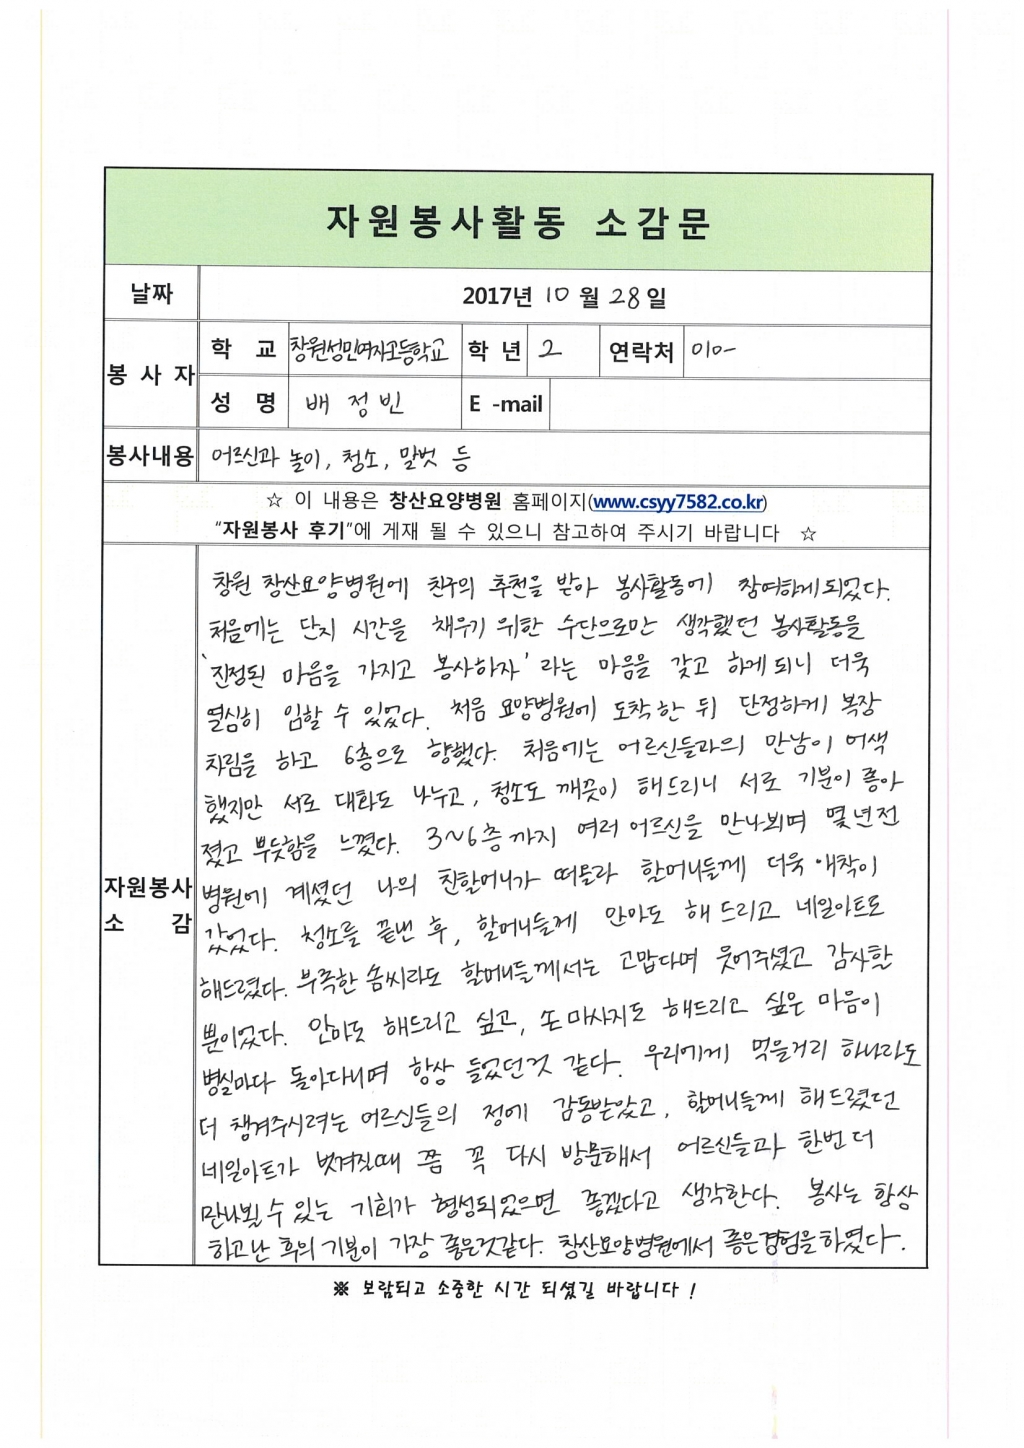 자원봉사활동 소감문
날짜
2017년 10 월 28일
봉 사 자
학 교
창원성민여자고등학교
학 년
2
연락처
010-
성 명
배 정 빈
E -mail
봉사내용
어르신과 놀이, 청소, 말벗 등
☆ 이 내용은 창산요양병원 홈페이지(www.csyy7582.co.kr)
“자원봉사 후기”에 게재 될 수 있으니 참고하여 주시기 바랍니다 ☆
자원봉사
소 감
창원 창산요양병원에 친구의 추천을 받아 봉사활동에 참여하게되었다.
처음에는 단지 시간을 채우기 위한 수단으로만 생각했던 봉사활동을
'진정된 마음을 가지고 봉사하자' 라는 마음을 갖고 하게되니 더욱
열심히 임할 수 있었다. 처음 요양병원에 도착한 뒤 단정하게 복장
차림을 하고 6층으로 향했다. 처음에는 어르신들과의 만남이 어색
했지만 서로 대화도 나누고, 청소도 깨끗이 해드리니 서로 기분이 좋아
졌고 뿌듯함을 느꼈다. 3~6층까지 여러 어르신을 만나뵈며 몇년전
병원에 계셨던 나의 친할머니가 떠올라 할머니들께 더욱 애착이
갔었다. 청소를 끝낸 후, 할머니들께 안마도 해 드리고 네일아트도
해드렸다. 부족한 솜씨라도 할머니들께서는 고맙다며 웃어주셨고 감사할
뿐이었다. 안마도 해드리고 싶고, 손 마사지도 해드리고 싶은 마음이
병실마다 돌아다니며 항상 들었던것 같다. 우리에게 먹을거리 하나라도
더 챙겨주시려는 어르신들의 정에 감동받았고, 할머니들께 해드렸던
네일아트가 벗겨질때 쯤 꼭 다시 방문해서 어르신들과 한번 더
만나뵐 수 있는 기회가 형성되었으면 좋겠다고 생각한다. 봉사는 항상
하고난 후의 기분이 가장 좋은것같다. 창산요양병원에서 좋은경험을하였다.
※ 보람되고 소중한 시간 되셨길 바랍니다 !